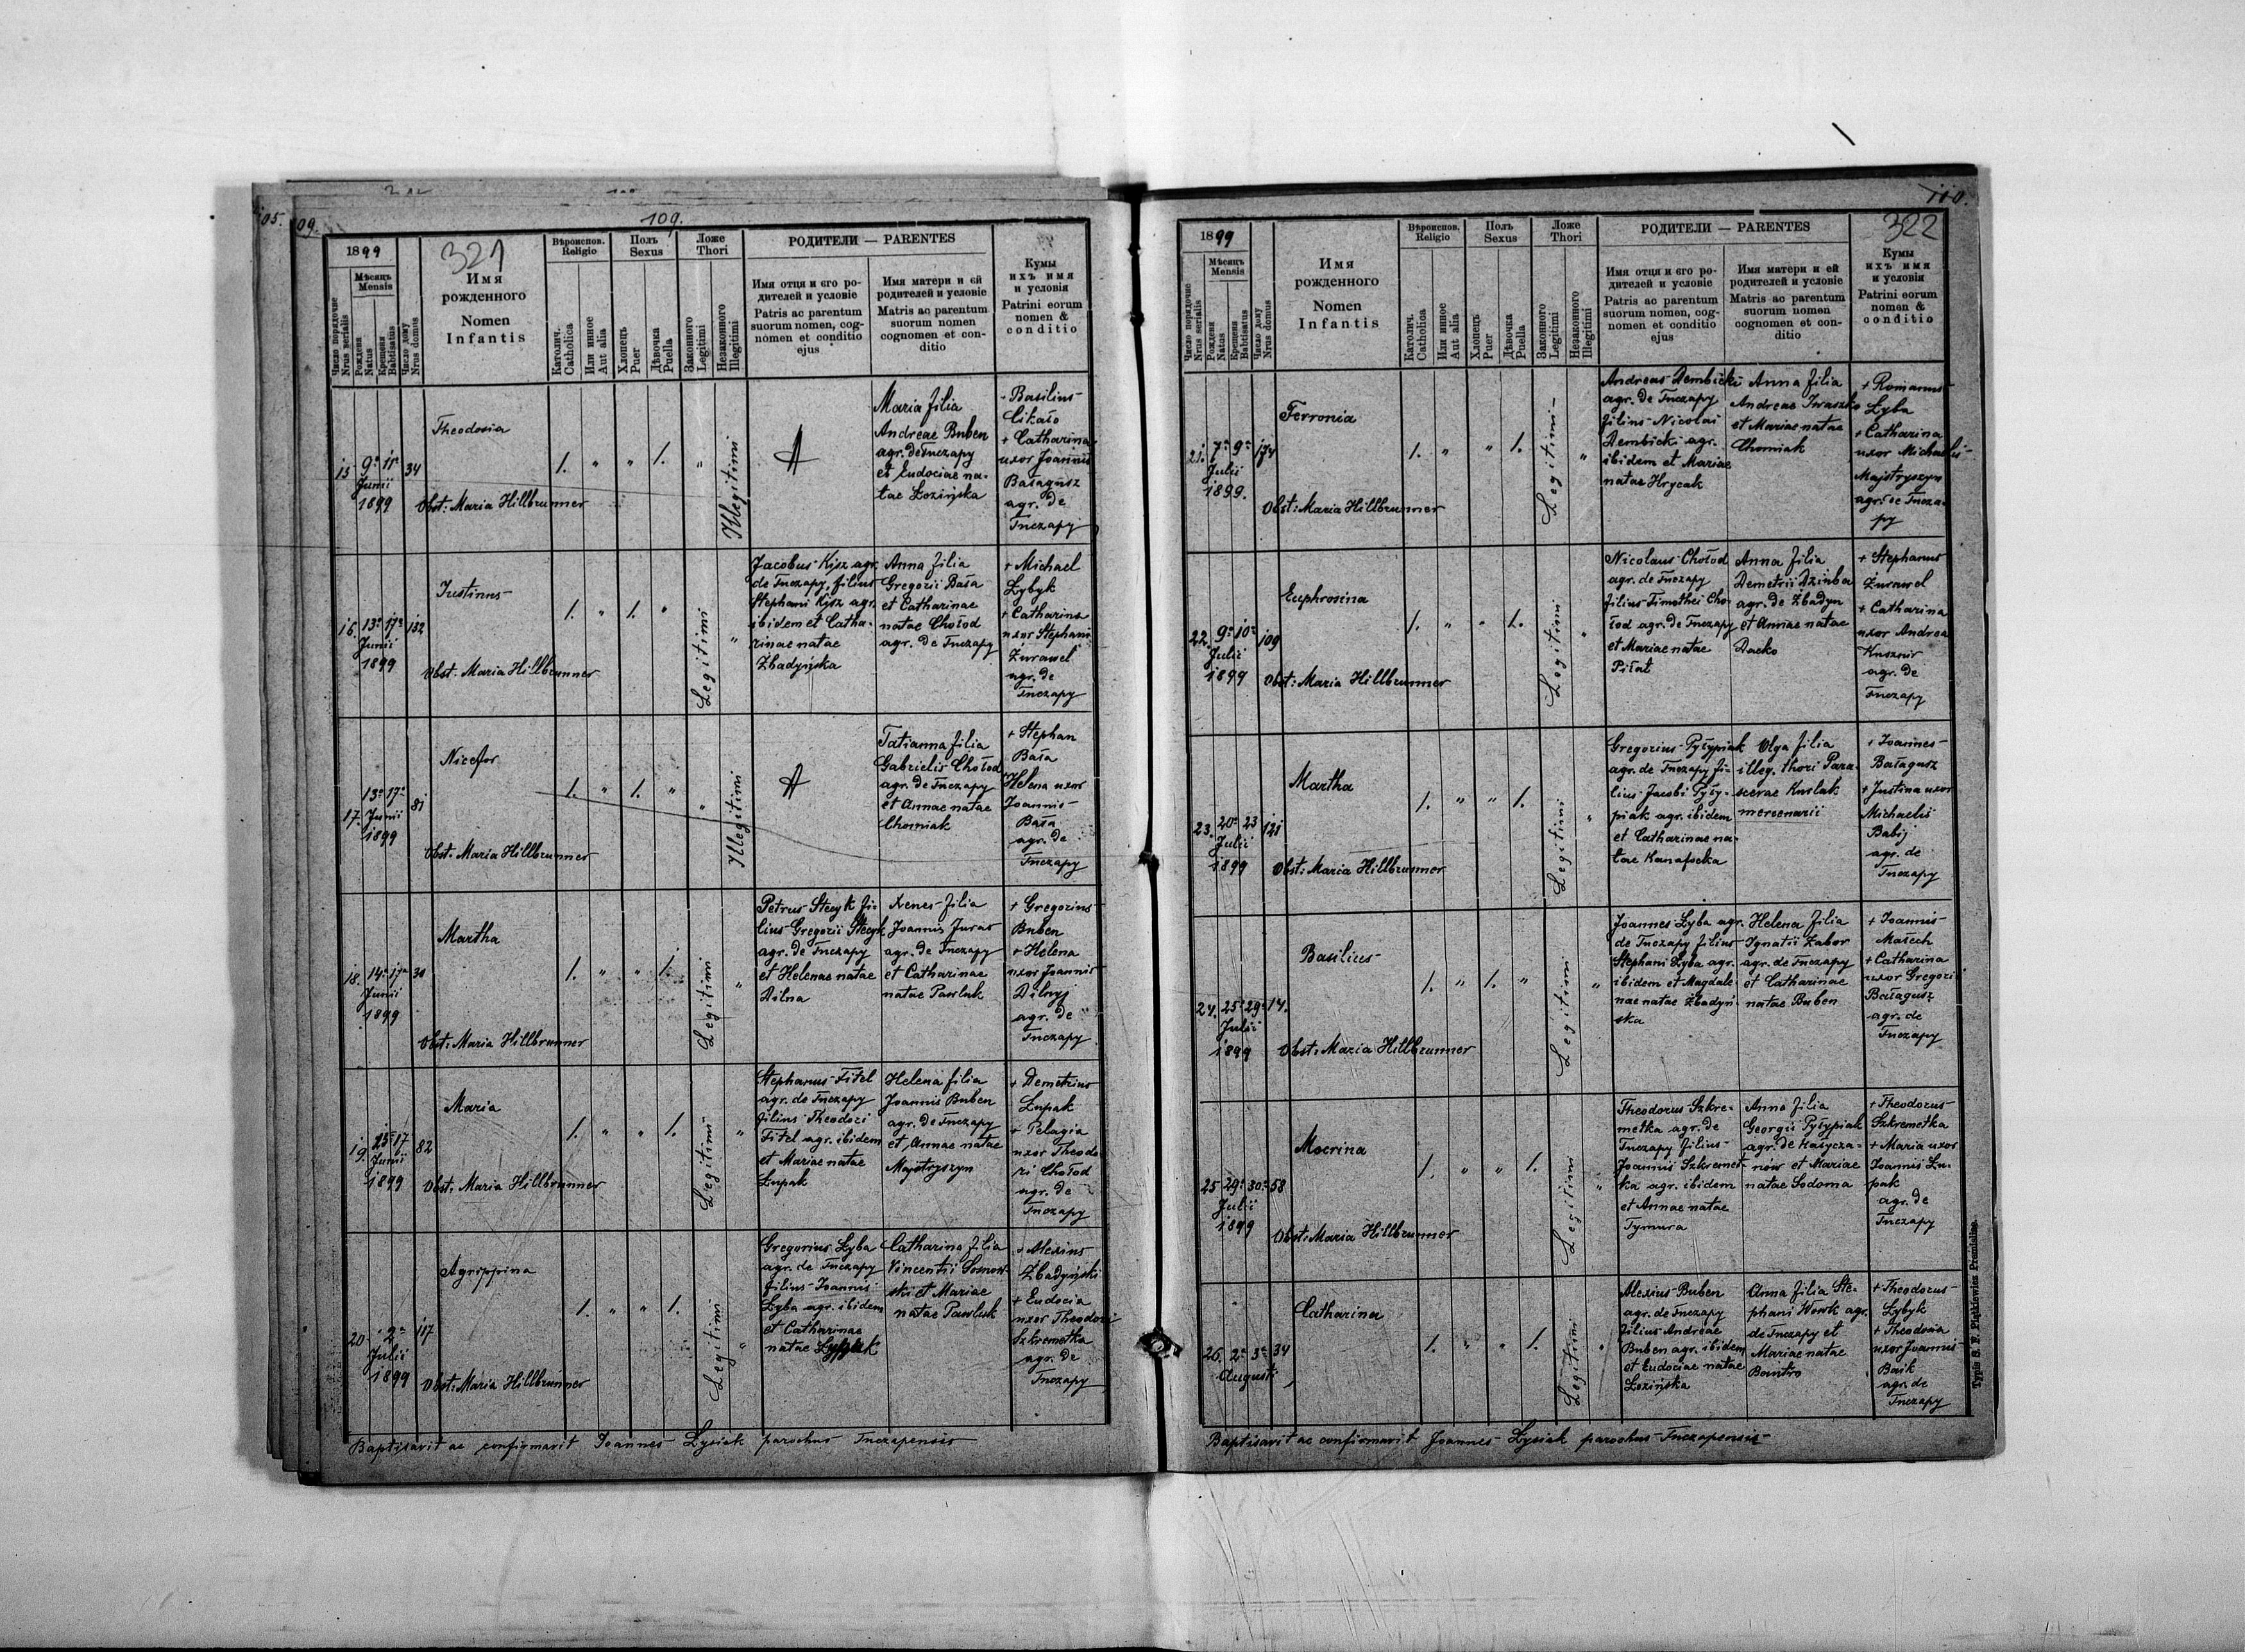 105.
109.
109.
1899
321
Мѣсяцъ
Mensis
Число порядочне
Nrus serialis
Рождена
Natus
Крещена
Babtisatus
Число дому
Nrus domus
Имя
рожденного
Nomen
Infantis
Вѣроиспов.
Religio
Католич.
Catholica
Или инное
Aut alia
Полъ
Sexus
Хлопецъ
Puer
Дѣвочка
Puella
Ложе
Thori
Законного
Legitimi
Незаконного
Illegitimi
РОДИТЕЛИ — PARENTES
Имя отця и єго ро-
дителей и условіе
Patris ac parentum
suorum nomen, cog-
nomen et conditio
ejus
Имя матери и єй
родителей и условіе
Matris ac parentum
suorum nomen
cognomen et con-
ditio
Кумы
ихъ имя
и условія
Patrini eorum
nomen &
conditio
15 9a 11a 34
Junii
1899
Theodosia
Obst: Maria Hillbrunner
1. " " 1. "
Illegitimi
Maria filia
Andreae Buben
agr. de Tuczapy
et Eudociae na-
tae Łozińska
- Basilius
Cikało
+ Catharina
uxor Joannis
Bałagusz
agr. de
Tuczapy
16. 13a 17a 132
Junii
1899
Justinus
Obst. Maria Hillbrunner
1. " 1. "
Legitimi
"
Jacobus Kisz agr.
de Tuczapy, filius
Stephani Kisz agr.
ibidem et Catha-
rinae natae
Zbadyńska
Anna filia
Gregorii Bała
et Catharinae
natae Chołod
agr. de Tuczapy
+ Michael
Łybyk
+ Catharina
uxor Stephani
Żurawel
agr. de
Tuczapy
17. 13a 17a 81
Junii
1899
Nicefor
Obst. Maria Hillbrunner
1. " 1. " "
Illegitimi
Tatianna filia
Gabrielis Chołod
agr. de Tuczapy
et Annae natae
Chomiak
+ Stephan
Bała
+ Helena uxor
Joannis
Bała
agr. de
Tuczapy
18. 14a 17a 30
Junii
1899
Martha
Obst: Maria Hillbrunner
1. " " 1.
Legitimi
"
Petrus Stecyk fi-
lius Gregorii Stecyk
agr. de Tuczapy
et Helenae natae
Dilna
Xenes filia
Joannis Juras
agr. de Tuczapy
et Catharinae
natae Pawluk
+ Gregorius
Buben
+ Helena
uxor Joannis
Dilnyj
agr. de
Tuczapy
19. 15 17 82
Junii
1899
Maria
Obst: Maria Hillbrunner
1. " " 1.
Legitimi
"
Stephanus Fitel
agr. de Tuczapy
filius Theodori
Fitel agr. ibidem
et Mariae natae
Łupak
Helena filia
Joannis Buben
agr. de Tuczapy
et Annae natae
Majstryszyn
+ Demetrius
Łupak
+ Pelagia
uxor Theodo-
ri Chołod
agr. de
Tuczapy
20 1 2a 117
Julii
1899
Agrippina
Obst: Maria Hillbrunner
1. " " 1.
Legitimi
"
Gregorius Łyba
agr. de Tuczapy
filius Joannis
Łyba agr. ibidem
et Catharinae
natae
Catharina filia
Vincentii Sosnow-
ski et Mariae
natae Pawluk
+ Alexius
Zbadyński
+ Eudocia
uxor Theodori
Szkremetka
agr. de
Tuczapy
Baptisavit ac confirmavit Joannes Łysiak parochus Tuczapensis
110.
1899
322
Мѣсяцъ
Mensis
Число порядочне
Nrus serialis
Рождена
Natus
Крещена
Babtisatus
Число дому
Nrus domus
Имя
рожденного
Nomen
Infantis
Вѣроиспов.
Religio
Католич.
Catholica
Или инное
Aut alia
Полъ
Sexus
Хлопецъ
Puer
Дѣвочка
Puella
Ложе
Thori
Законного
Legitimi
Незаконного
Illegitimi
РОДИТЕЛИ — PARENTES
Имя отця и єго ро-
дителей и условіе
Patris ac parentum
suorum nomen, cog-
nomen et conditio
ejus
Имя матери и єй
родителей и условіе
Matris ac parentum
suorum nomen
cognomen et con-
ditio
Кумы
ихъ имя
и условія
Patrini eorum
nomen &
conditio
21. 7a 9a 174
Julii
1899.
Ferronia
Obst: Maria Hillbrunner
1. " " 1.
Legitimi
"
Andreas Dembicki
agr. de Tuczapy
filius Nicolai
Dembicki agr.
ibidem et Mariae
natae Hrycak
Anna filia
Andreae Iwaszko
et Mariae natae
Chomiak
+ Romanus
Łyba
+ Catharina
uxor Michaelis
Majstryszyn
agr. de Tucza-
py
22. 9a 10a 109
Julii
1899
Euphrosina
Obst: Maria Hillbrunner
1. " " 1.
Legitimi
"
Nicolaus Chołod
agr. de Tuczapy
filius Timothei Cho-
łod agr. de Tuczapy
et Mariae natae
Piłat
Anna filia
Demetrii Dziuba
agr. de Zbadyn
et Annae natae
Dacko
+ Stephanus
Żurawel
+ Catharina
uxor Andrea
Kusznir
agr. de
Tuczapy
23. 20a 23 121
Julii
1899
Martha
Obst: Maria Hillbrunner
1. " " 1.
Legitimi
"
Gregorius Pyłypiak
agr. de Tuczapy fi-
lius Jacobi Pyły-
piak agr. ibidem
et Catharinae na-
tae Kanafocka
Olga filia
illeg. thori Para-
scevae Kusluk
mercenarii
+ Joannes
Bałagusz
+ Justina uxor
Michaelis
Babij
agr. de
Tuczapy
24. 25a 29a 14.
Julii
1899
Basilius
Obst: Maria Hillbrunner
1. " 1. "
Legitimi
"
Joannes Łyba agr.
de Tuczapy filius
Stephani Łyba agr.
ibidem et Magdale-
nae natae Zbadyń-
ska
Helena filia
Ignatii Zabor
agr. de Tuczapy
et Catharinae
natae Buben
+ Joannis
Małech
+ Catharina
uxor Gregori
Bałagusz
agr. de
Tuczapy
25 29a 30a 58
Julii
1899
Mocrina
Obst: Maria Hillbrunner
1. " " 1.
Legitimi
"
Theodorus Szkre-
metka agr. de
Tuczapy filius
Joannis Szkremet-
ka agr. ibidem
et Annae natae
Tymura
Anna filia
Georgii Pyłypiak
agr. de
et Mariae
natae Sodoma
+ Theodorus
Szkremetka
+ Maria uxor
Joannis Łu-
pak
agr. de
Tuczapy
26. 2a 3a 34
Augusti
Catharina
1. " " 1.
Legitimi
"
Alexius Buben
agr. de Tuczapy
filius Andreae
Buben agr. ibidem
et Eudociae natae
Łozińska
Anna filia Ste-
phani Wowk agr.
de Tuczapy et
Mariae natae
+ Theodorus
Łybyk
+ Theodosia
uxor Joannis
Baik
agr. de
Tuczapy
Baptisavit ac confirmavit Joannes Łysiak parochus Tuczapensis
Typis S. F. Piątkiewicz Premisliae.